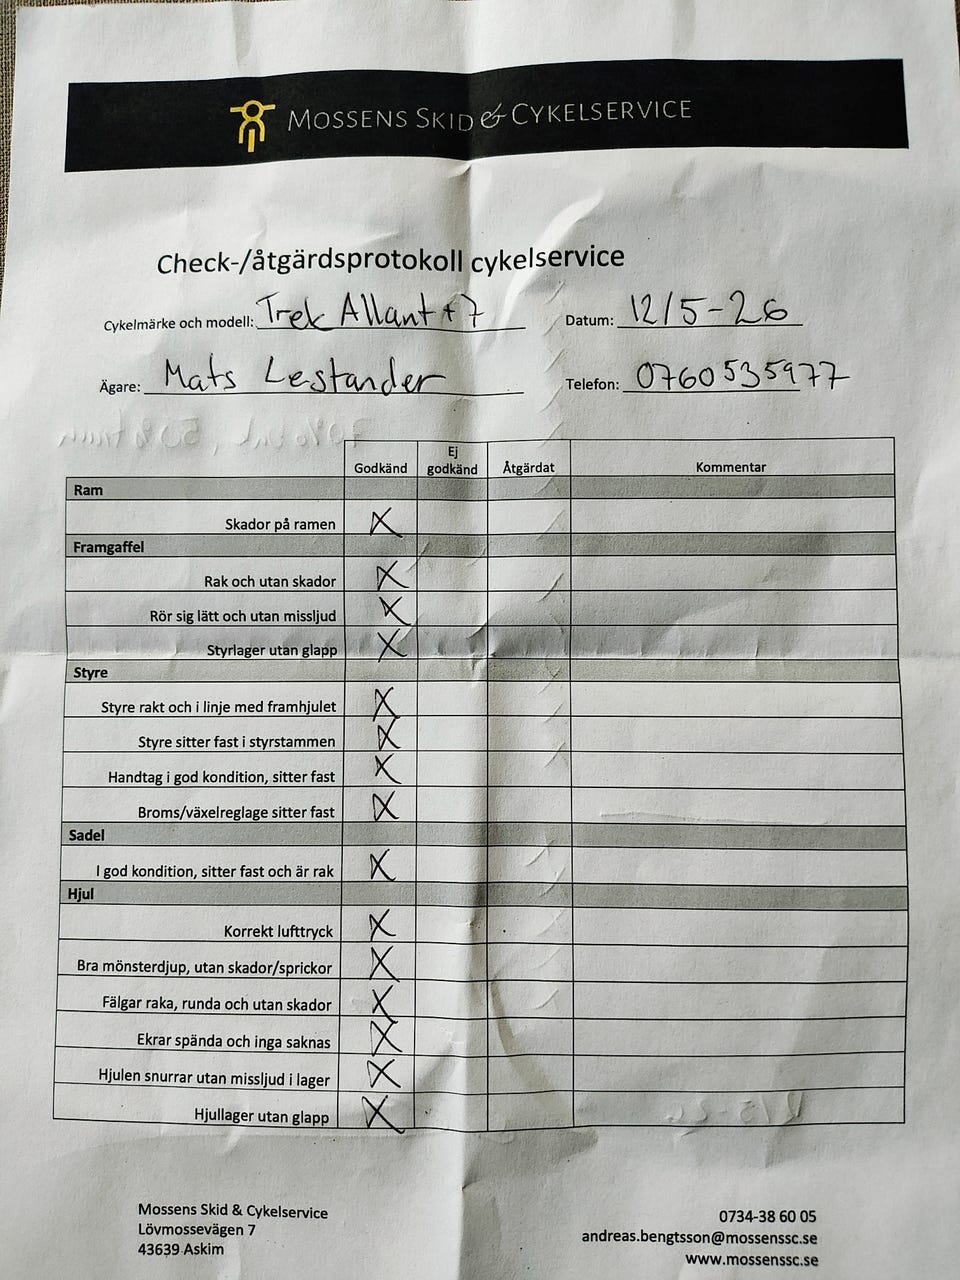 MOSSENS SKID & CYKELSERVICE
Check-/åtgärdsprotokoll cykelservice
Cykelmärke och modell: Trek Allant+7 Datum: 12/5-26
Ägare: Mats Lestander Telefon: 0760535977
Godkänd Ej godkänd Åtgärdat Kommentar
Ram
Skador på ramen X
Framgaffel
Rak och utan skador X
Rör sig lätt och utan missljud X
Styrlager utan glapp X
Styre
Styre rakt och i linje med framhjulet X
Styre sitter fast i styrstammen X
Handtag i god kondition, sitter fast X
Broms/växelreglage sitter fast X
Sadel
I god kondition, sitter fast och är rak X
Hjul
Korrekt lufttryck X
Bra mönsterdjup, utan skador/sprickor X
Fälgar raka, runda och utan skador X
Ekrar spända och inga saknas X
Hjulen snurrar utan missljud i lager X
Hjullager utan glapp X
Mossens Skid & Cykelservice
Lövmossevägen 7
43639 Askim
0734-38 60 05
andreas.bengtsson@mossenssc.se
www.mossenssc.se